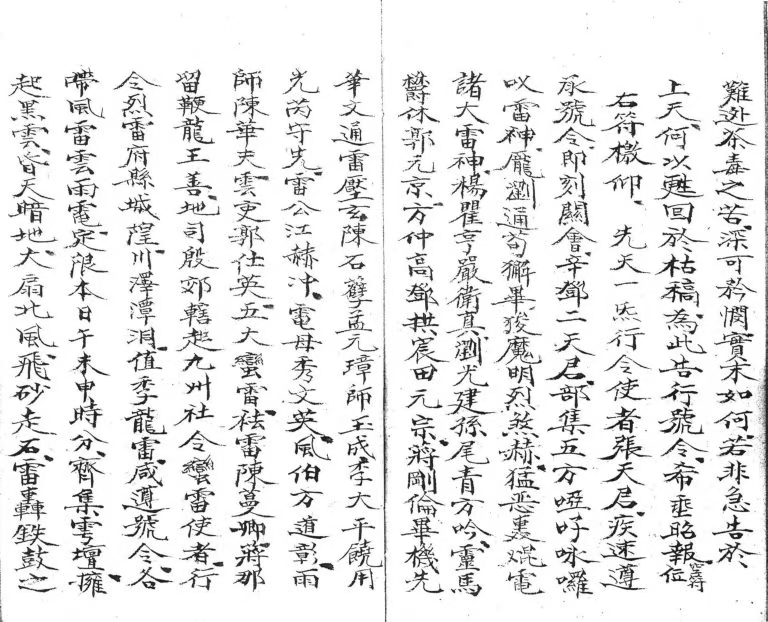 難逃荼毒之苦深可矜憫實未如何若非急告於
上天何以甦回於枯稿為此告行號令希垂昭報位
右符檄仰 先天一炁行令使者張天君疾速遵
承號令即刻關會辛鄧二天君部集五方呸吽咏囉
吹雷神龐劉通苟獬畢狻魔明烈煞赫猛惡裏焜電
諸大雷神楊瞿亨嚴衛真劉光建孫尾青方吟靈馬
欝休郭元京方仲高鄧拱宸田元宗蔣剛倫畢機先
華文通雷壓玄陳石孽孟元璋師王成李大平饒用
光芮守先雷公江赫冲電母秀文英風伯方道彰雨
師陳華夫雲吏郭仕英五大蠻雷祛雷陳蔓卿蔣那
留鞭龍王善地司殷郊轄起九州社令蠻雷使者行
令烈雷府縣城隍川澤潭洞值季龍雷咸遵號令各
帶風雷雲雨電定限本日午未申時分齊集雩壇擁
起黑雲昏天暗地大扇北風飛砂走石雷轟鉄鼓之